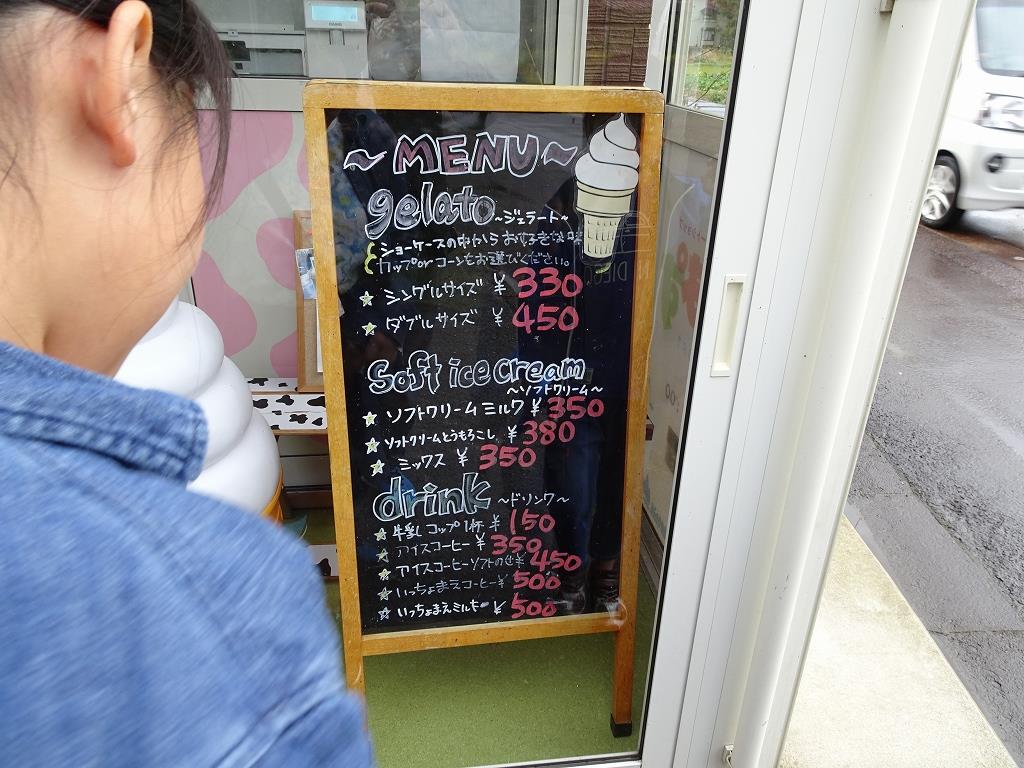 ~MENU~
gelato ~ジェラート~
ショーケースの中からお好きな味
カップorコーンをお選びください。
☆ シングルサイズ ¥ 330
☆ ダブルサイズ ¥ 450
soft ice cream
~ソフトクリーム~
☆ ソフトクリームミルク ¥ 350
☆ ソフトクリームとうもろこし ¥ 380
☆ ミックス ¥ 350
drink ~ドリンク~
☆ 牛乳 コップ1杯 ¥ 150
☆ アイスコーヒー ¥ 350
☆ アイスコーヒーソフトのせ ¥ 450
☆ いっちょまえコーヒー ¥ 500
☆ いっちょまえミルキー ¥ 500